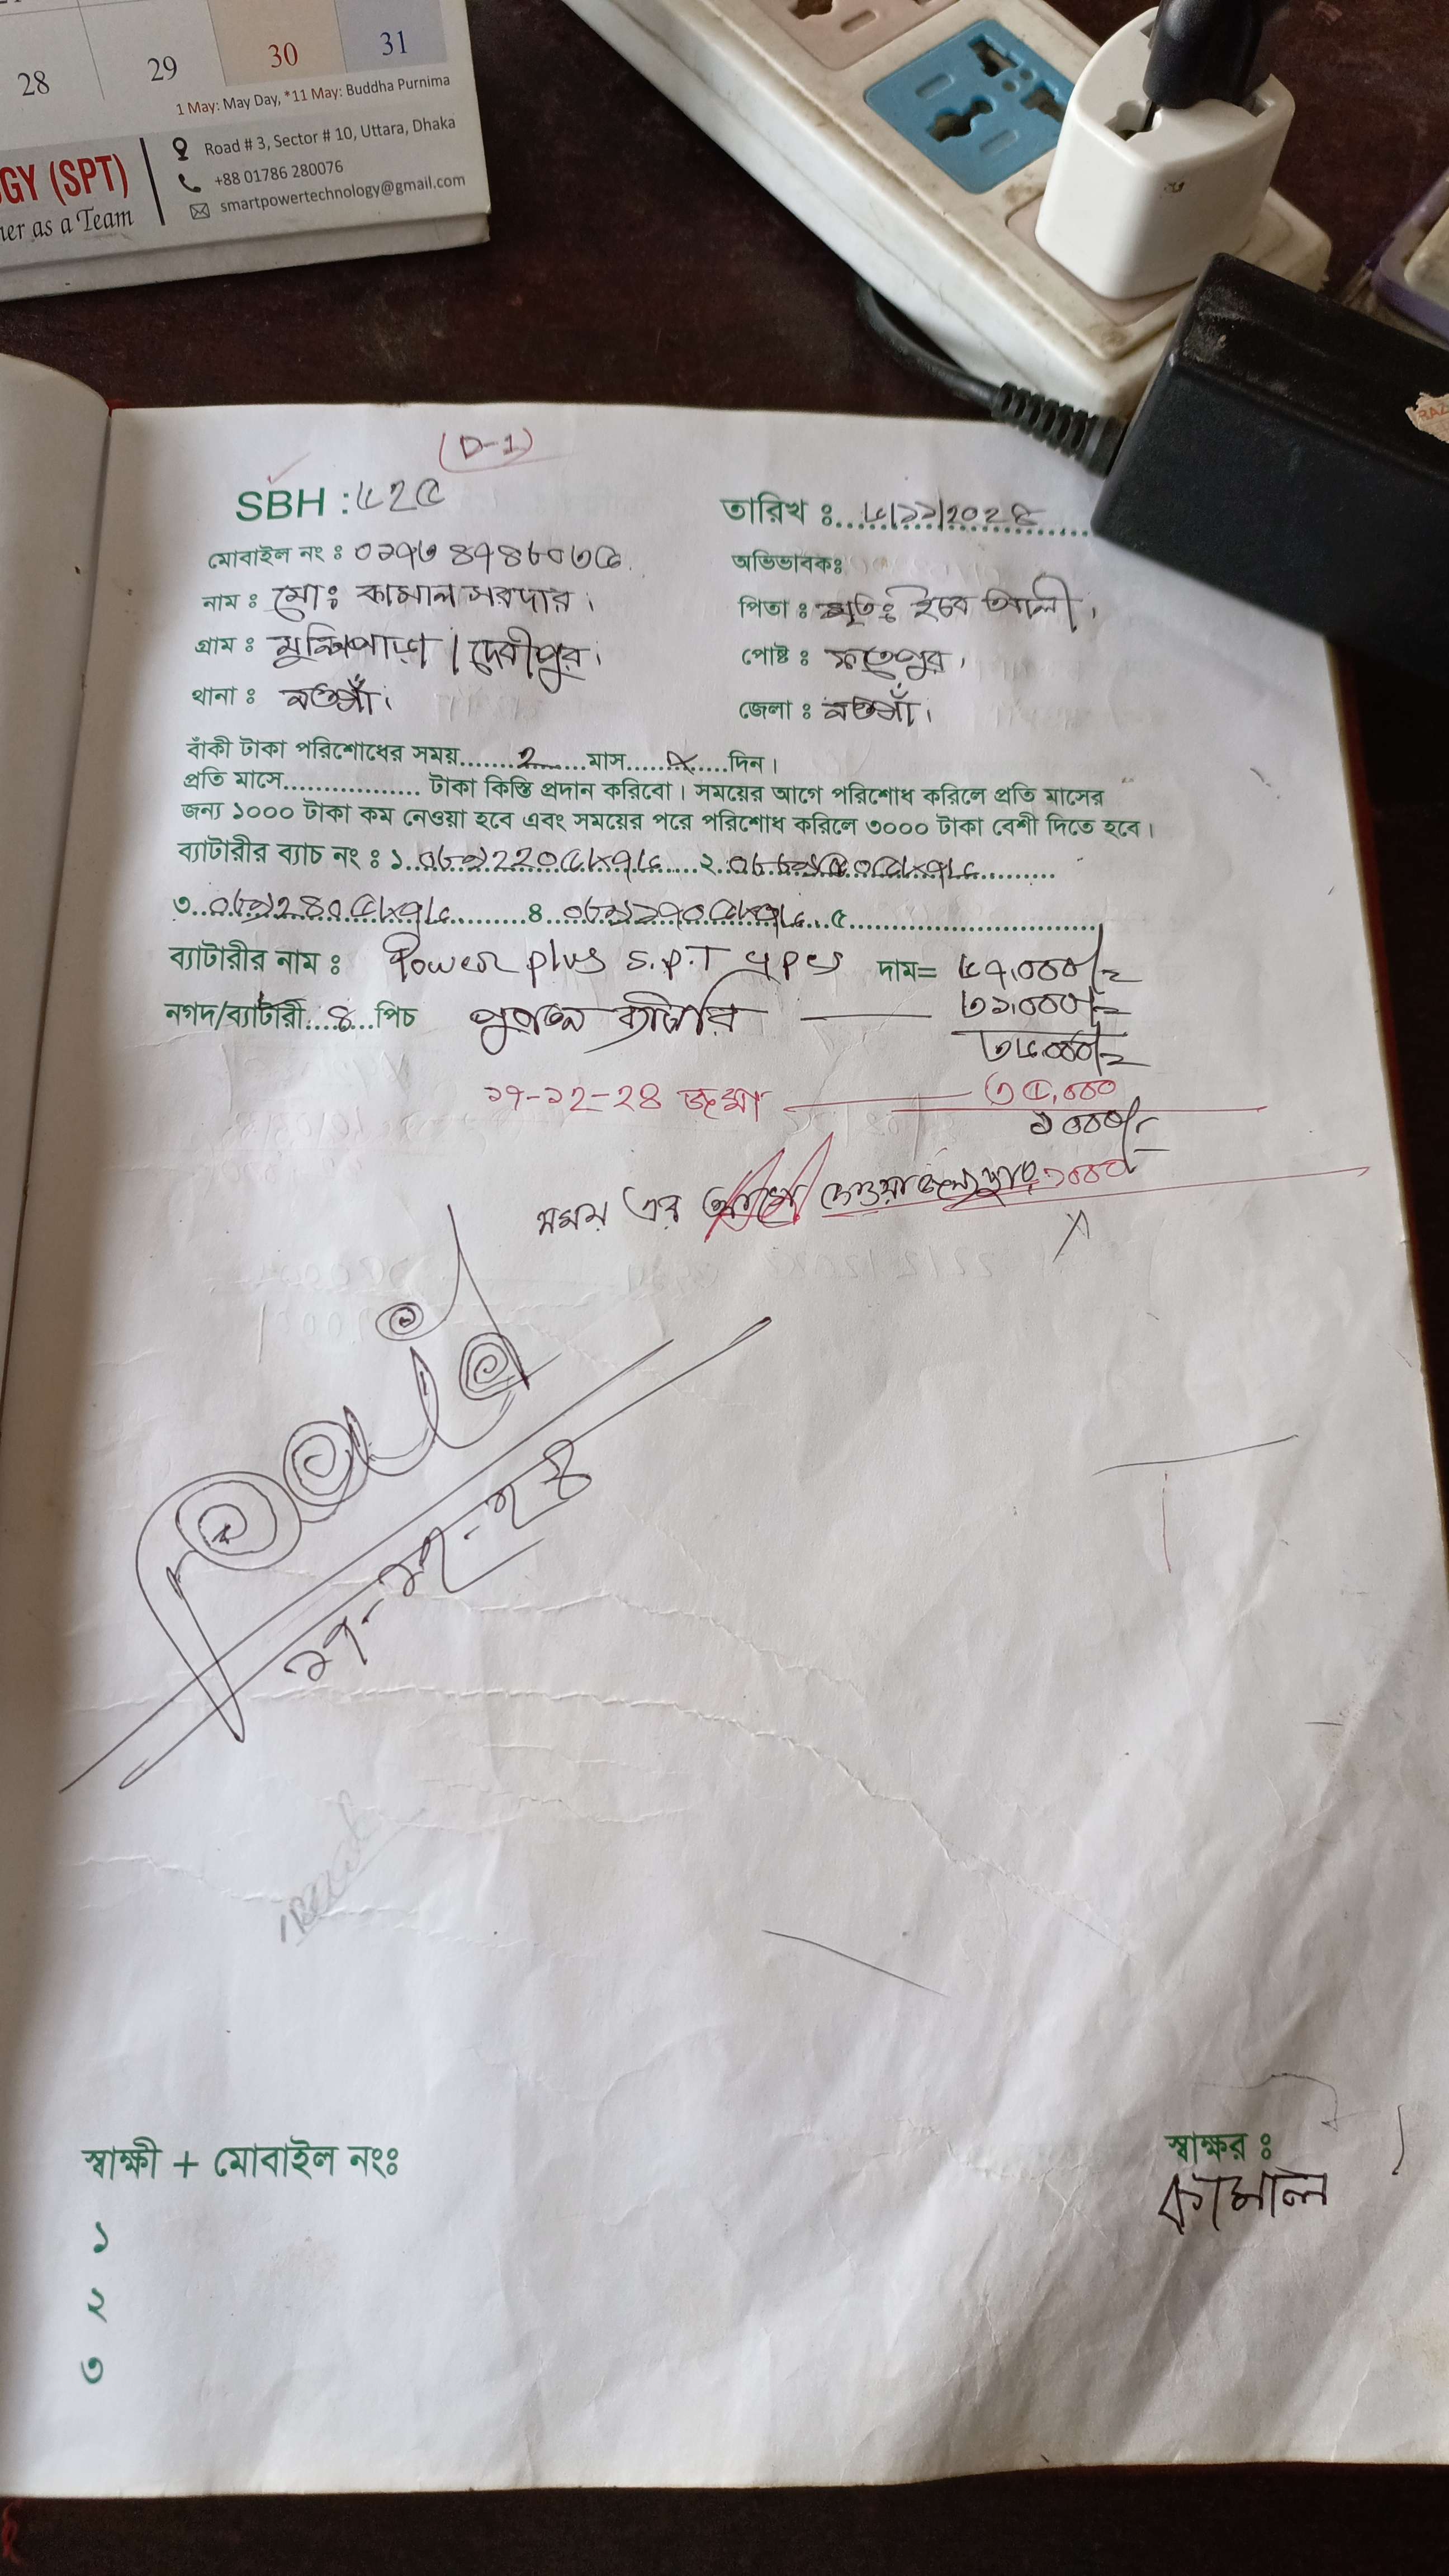 28 29 30 31
1 May: May Day, *11 May: Buddha Purnima
GY (SPT)
Road # 3, Sector # 10, Uttara, Dhaka
+88 01786 280076
smartpowertechnology@gmail.com
her as a Team
(D-1)
SBH : ৬২৫
তারিখ ঃ ৬/১১/২০২৪
মোবাইল নং ঃ ০১৭৩৪৭৪৮০৩৫
অভিভাবকঃ
নাম ঃ মোঃ কামাল সরদার।
পিতা ঃ মৃতঃ আলী।
গ্রাম ঃ মুন্সিপাড়া / দেবীপুর।
পোষ্ট ঃ ফতেপুর।
থানা ঃ নওগাঁ।
জেলা ঃ নওগাঁ।
বাঁকী টাকা পরিশোধের সময়........২......মাস.....x.....দিন।
প্রতি মাসে................. টাকা কিস্তি প্রদান করিবো। সময়ের আগে পরিশোধ করিলে প্রতি মাসের
জন্য ১০০০ টাকা কম নেওয়া হবে এবং সময়ের পরে পরিশোধ করিলে ৩০০০ টাকা বেশী দিতে হবে।
ব্যাটারীর ব্যাচ নং ঃ ১. ২.
৩. ৪. ৫.
ব্যাটারীর নাম ঃ Power plus S.P.T দাম= ৬৭,০০০/=
নগদ/ব্যাটারী....৪...পিচ পুরাতন ব্যাটারি — ৩১,০০০/=
৩৬,০০০/=
১৭-১২-২৪ জমা — ৩৫,০০০
১০০০/-
সময় এর আগে দেওয়া জন্য ছাড় ১০০০/-
X
Paid
১৭-১২-২৪
স্বাক্ষী + মোবাইল নংঃ
স্বাক্ষর ঃ
কামাল
১
২
৩